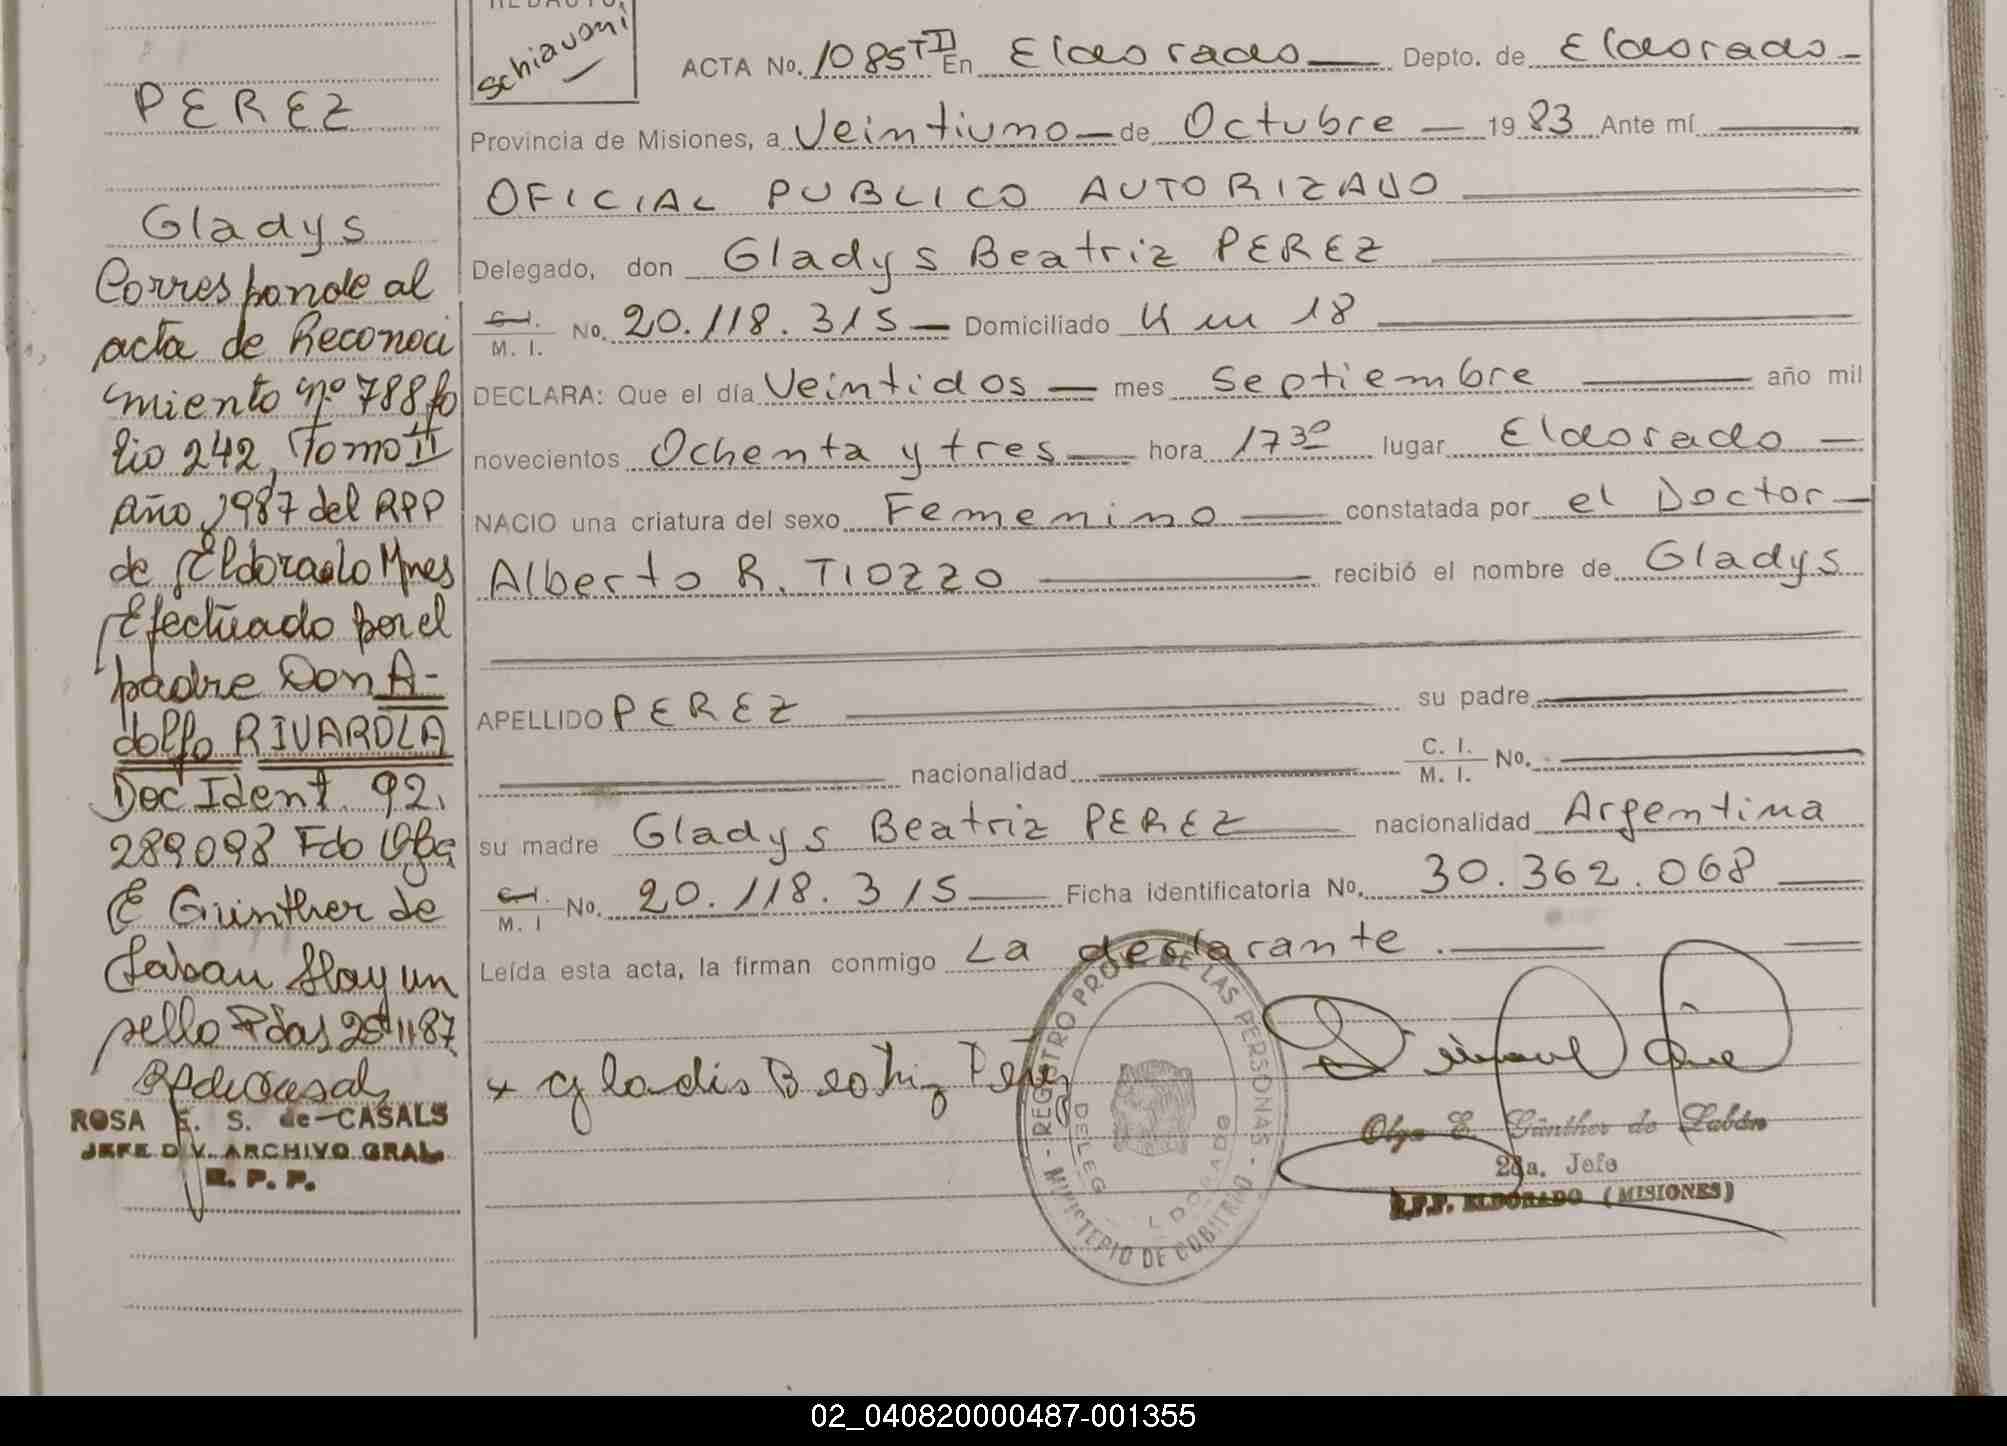 PEREZ
Gladys
Corresponde al
acta de Reconoci
miento nº 788 fo
lio 242, Tomo II
Año 1987 del RPP
de Eldorado Mnes
Efectuado por el
padre Don A-
dolfo RIVAROLA
Doc Ident 92.
289098 Fdo Olga
E Günther de
Laban Hay un
sello Pdas 20 11 87
ROSA E. S. de CASALS
JEFE DIV. ARCHIVO GRAL.
R. P. P.
REDACTO,
Schiavoni
ACTA No. 1085 TII En Eldorado Depto. de Eldorado
Provincia de Misiones, a Veintiuno de Octubre 1983 Ante mí
OFICIAL PUBLICO AUTORIZADO
Delegado, don Gladys Beatriz PEREZ
C.I. M. I. No. 20.118.315 Domiciliado Km 18
DECLARA: Que el día Veintidos mes Septiembre año mil
novecientos Ochenta y tres hora 17³⁰ lugar Eldorado
NACIO una criatura del sexo Femenino constatada por el Doctor
Alberto R. TIOZZO recibió el nombre de Gladys
APELLIDO PEREZ su padre
nacionalidad C. I. M. I. No.
su madre Gladys Beatriz PEREZ nacionalidad Argentina
C.I. M. I No. 20.118.315 Ficha identificatoria No. 30.362.068
Leída esta acta, la firman conmigo La declarante.
x Gladis Beatriz Perez
REGISTRO PROV. DE LAS PERSONAS - MINISTERIO DE GOBIERNO -
DELEG ELDORADO
Olga E. Günther de Labán
2da. Jefe
R.P.P. ELDORADO (MISIONES)
02_040820000487-001355